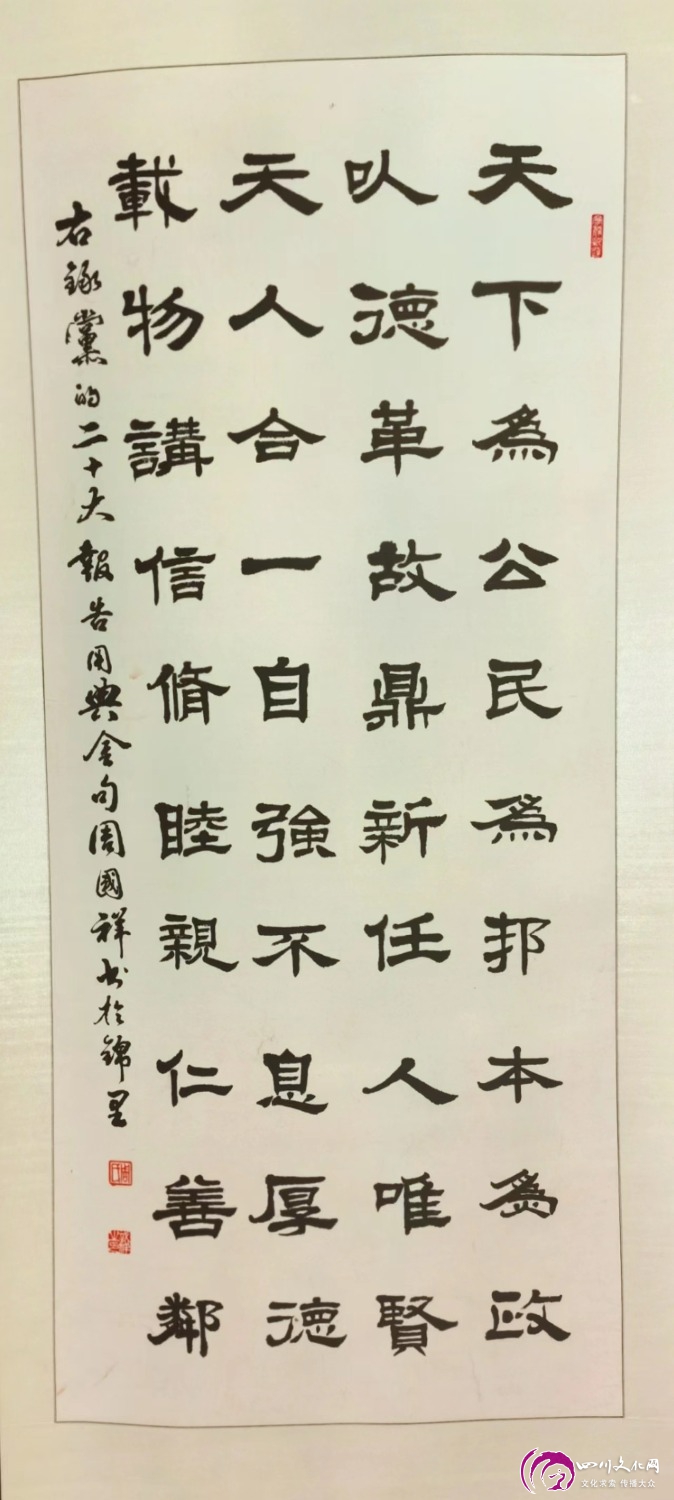 天下為公民為邦本為政
以德革故鼎新任人唯賢
天人合一自強不息厚德
載物講信脩睦親仁善鄰
右錄黨的二十大報告用典金句周國祥書於錦里
四川文化网
文化求索 传播大众